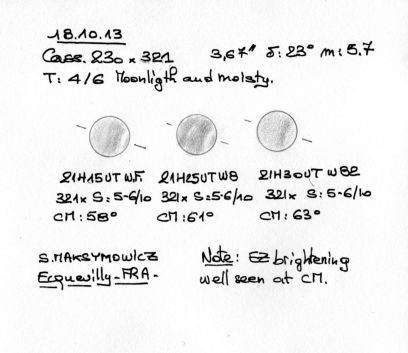 18.10.13
Cass. 230 x 321 3,67" δ: 23° m: 5.7
T: 4/6 Moonligth and moisty.
21H15UT WF. 21H25UT W8 21H30UT W82
321x S: 5-6/10 321x S: 5-6/10 321x S: 5-6/10
CM: 58° CM: 61° CM: 63°
S. MAKSYMOWICZ
Ecquevilly-FRA-
Note: EZ brightening
well seen at CM.